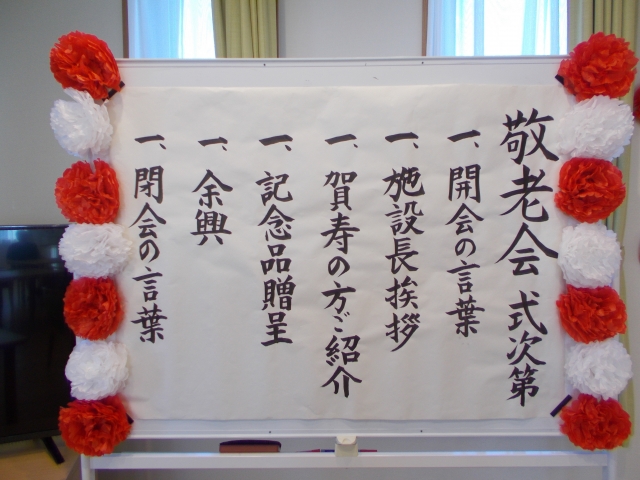 敬老会 式次第
一、開会の言葉
一、施設長挨拶
一、賀寿の方ご紹介
一、記念品贈呈
一、余興
一、閉会の言葉